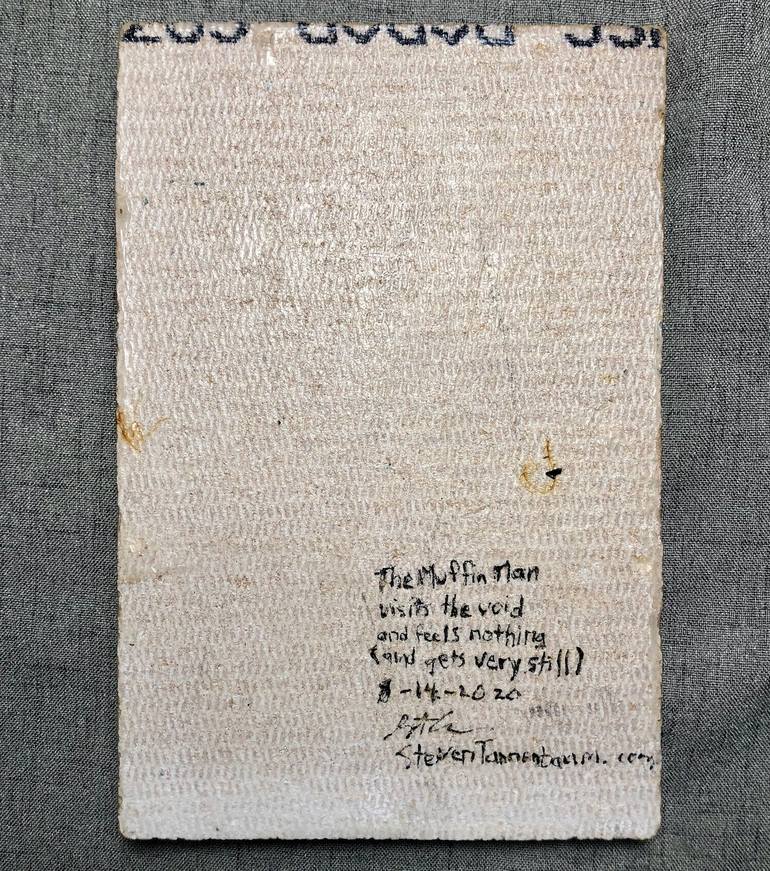 The Muffin Man
visits the void
and feels nothing
(and gets very still)
8-14-2020
StevenTannenbaum.com